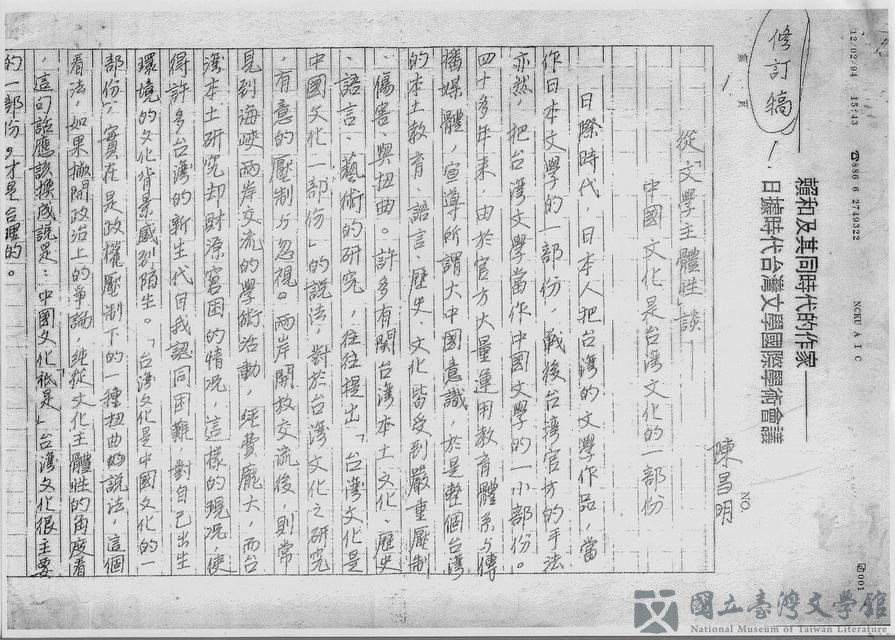 12/02/94 15:43 ☎886 6 2749322 NCKU A I C 001
賴和及其同時代的作家
日據時代台灣文學國際學術會議
修訂稿
第 1 頁
NO.
從「文學主體性」談
中國文化是台灣文化的一部份
陳昌明
日據時代,日本人把台灣的文學作品,當
作日本文學的一部份,戰後台灣官方的手法
亦然,把台灣文學當作中國文學的一小部份。
四十多年來,由於官方大量運用教育體系与傳
播媒體,宣導所謂大中國意識,於是整個台灣
的本土教育、語言、歷史、文化皆受到嚴重壓制
、傷害、與扭曲。許多有關台灣本土文化、歷史
、語言、藝術的研究,往往提出「台灣文化是
中國文化一部份」的說法,對於台灣文化之研究
,有意的壓制与忽視。兩岸開放交流後,則常
見到海峽兩岸交流的學術活動,經費龐大,而台
灣本土研究却財源窘困的情況,這樣的現況,使
得許多台灣的新生代自我認同困難,對自己出生
環境的文化背景感到陌生。「台灣文化是中國文化的一
部份」,實在是政權壓制下的一種扭曲的說法,這個
看法,如果撇開政治上的爭論,純從文化主體性的角度看
,這句話應該換成說是:中國文化「祇是」台灣文化很主要
的一部份,才是合理的。
國立臺灣文學館
National Museum of Taiwan Literature